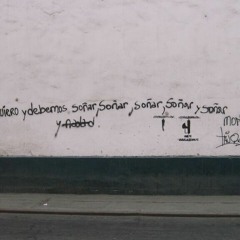 uiero y debemos soñar, soñar, soñar, soñar, y soñar
y
1 4